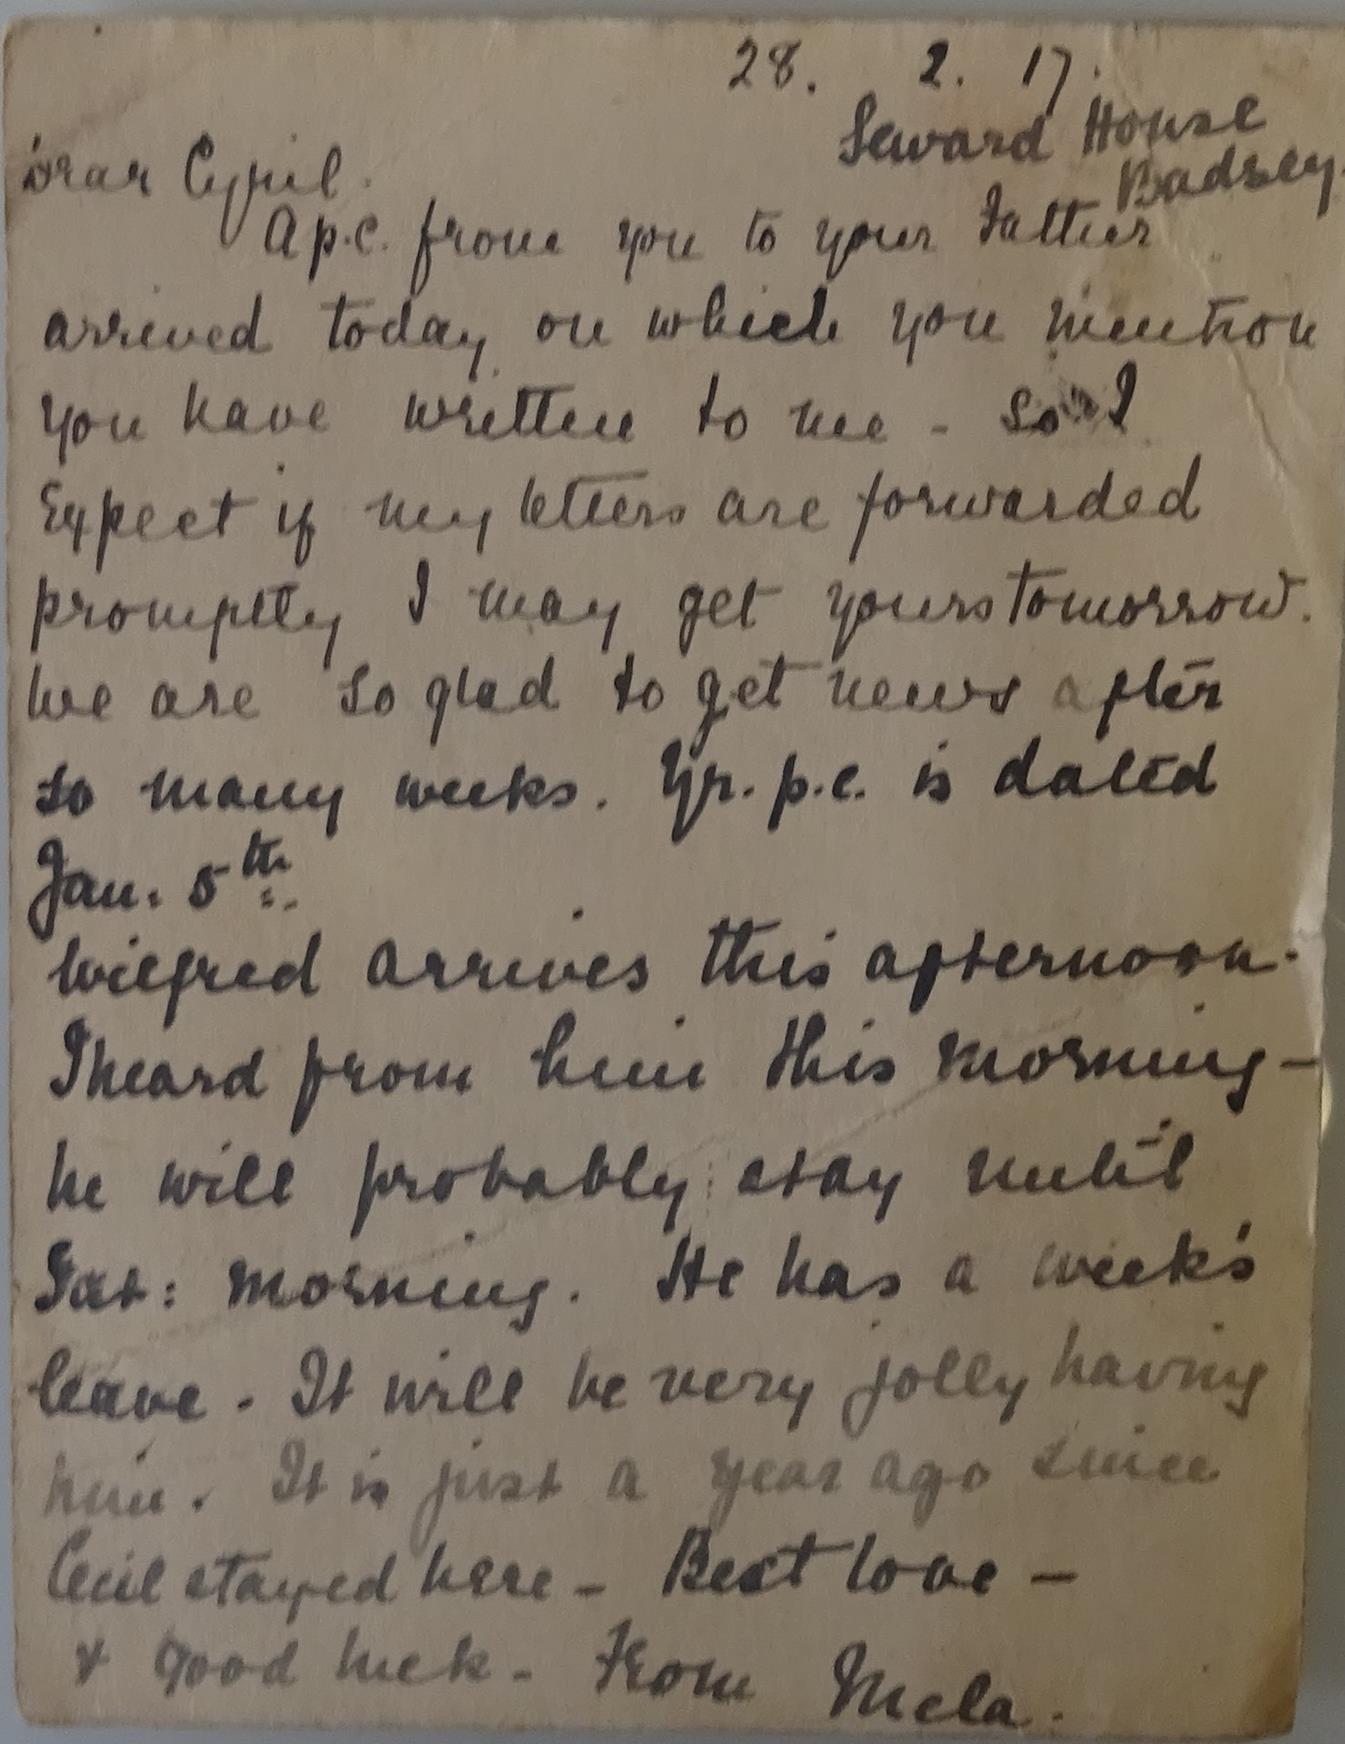 28. 2. 17.
Seward House
Badsey.
Dear Cyril.
A p.c. from you to your Father
arrived today on which you mention
you have written to me - so I
Expect if my letters are forwarded
promptly I may get yours tomorrow.
We are so glad to get news after
so many weeks. Yr. p.c. is dated
Jan. 5th
Wilfred arrives this afternoon.
I heard from him this morning -
he will probably stay until
Sat: morning. He has a week's
leave. It will be very jolly having
him. It is just a year ago since
Cecil stayed here - Best love -
& good luck - From Mela.